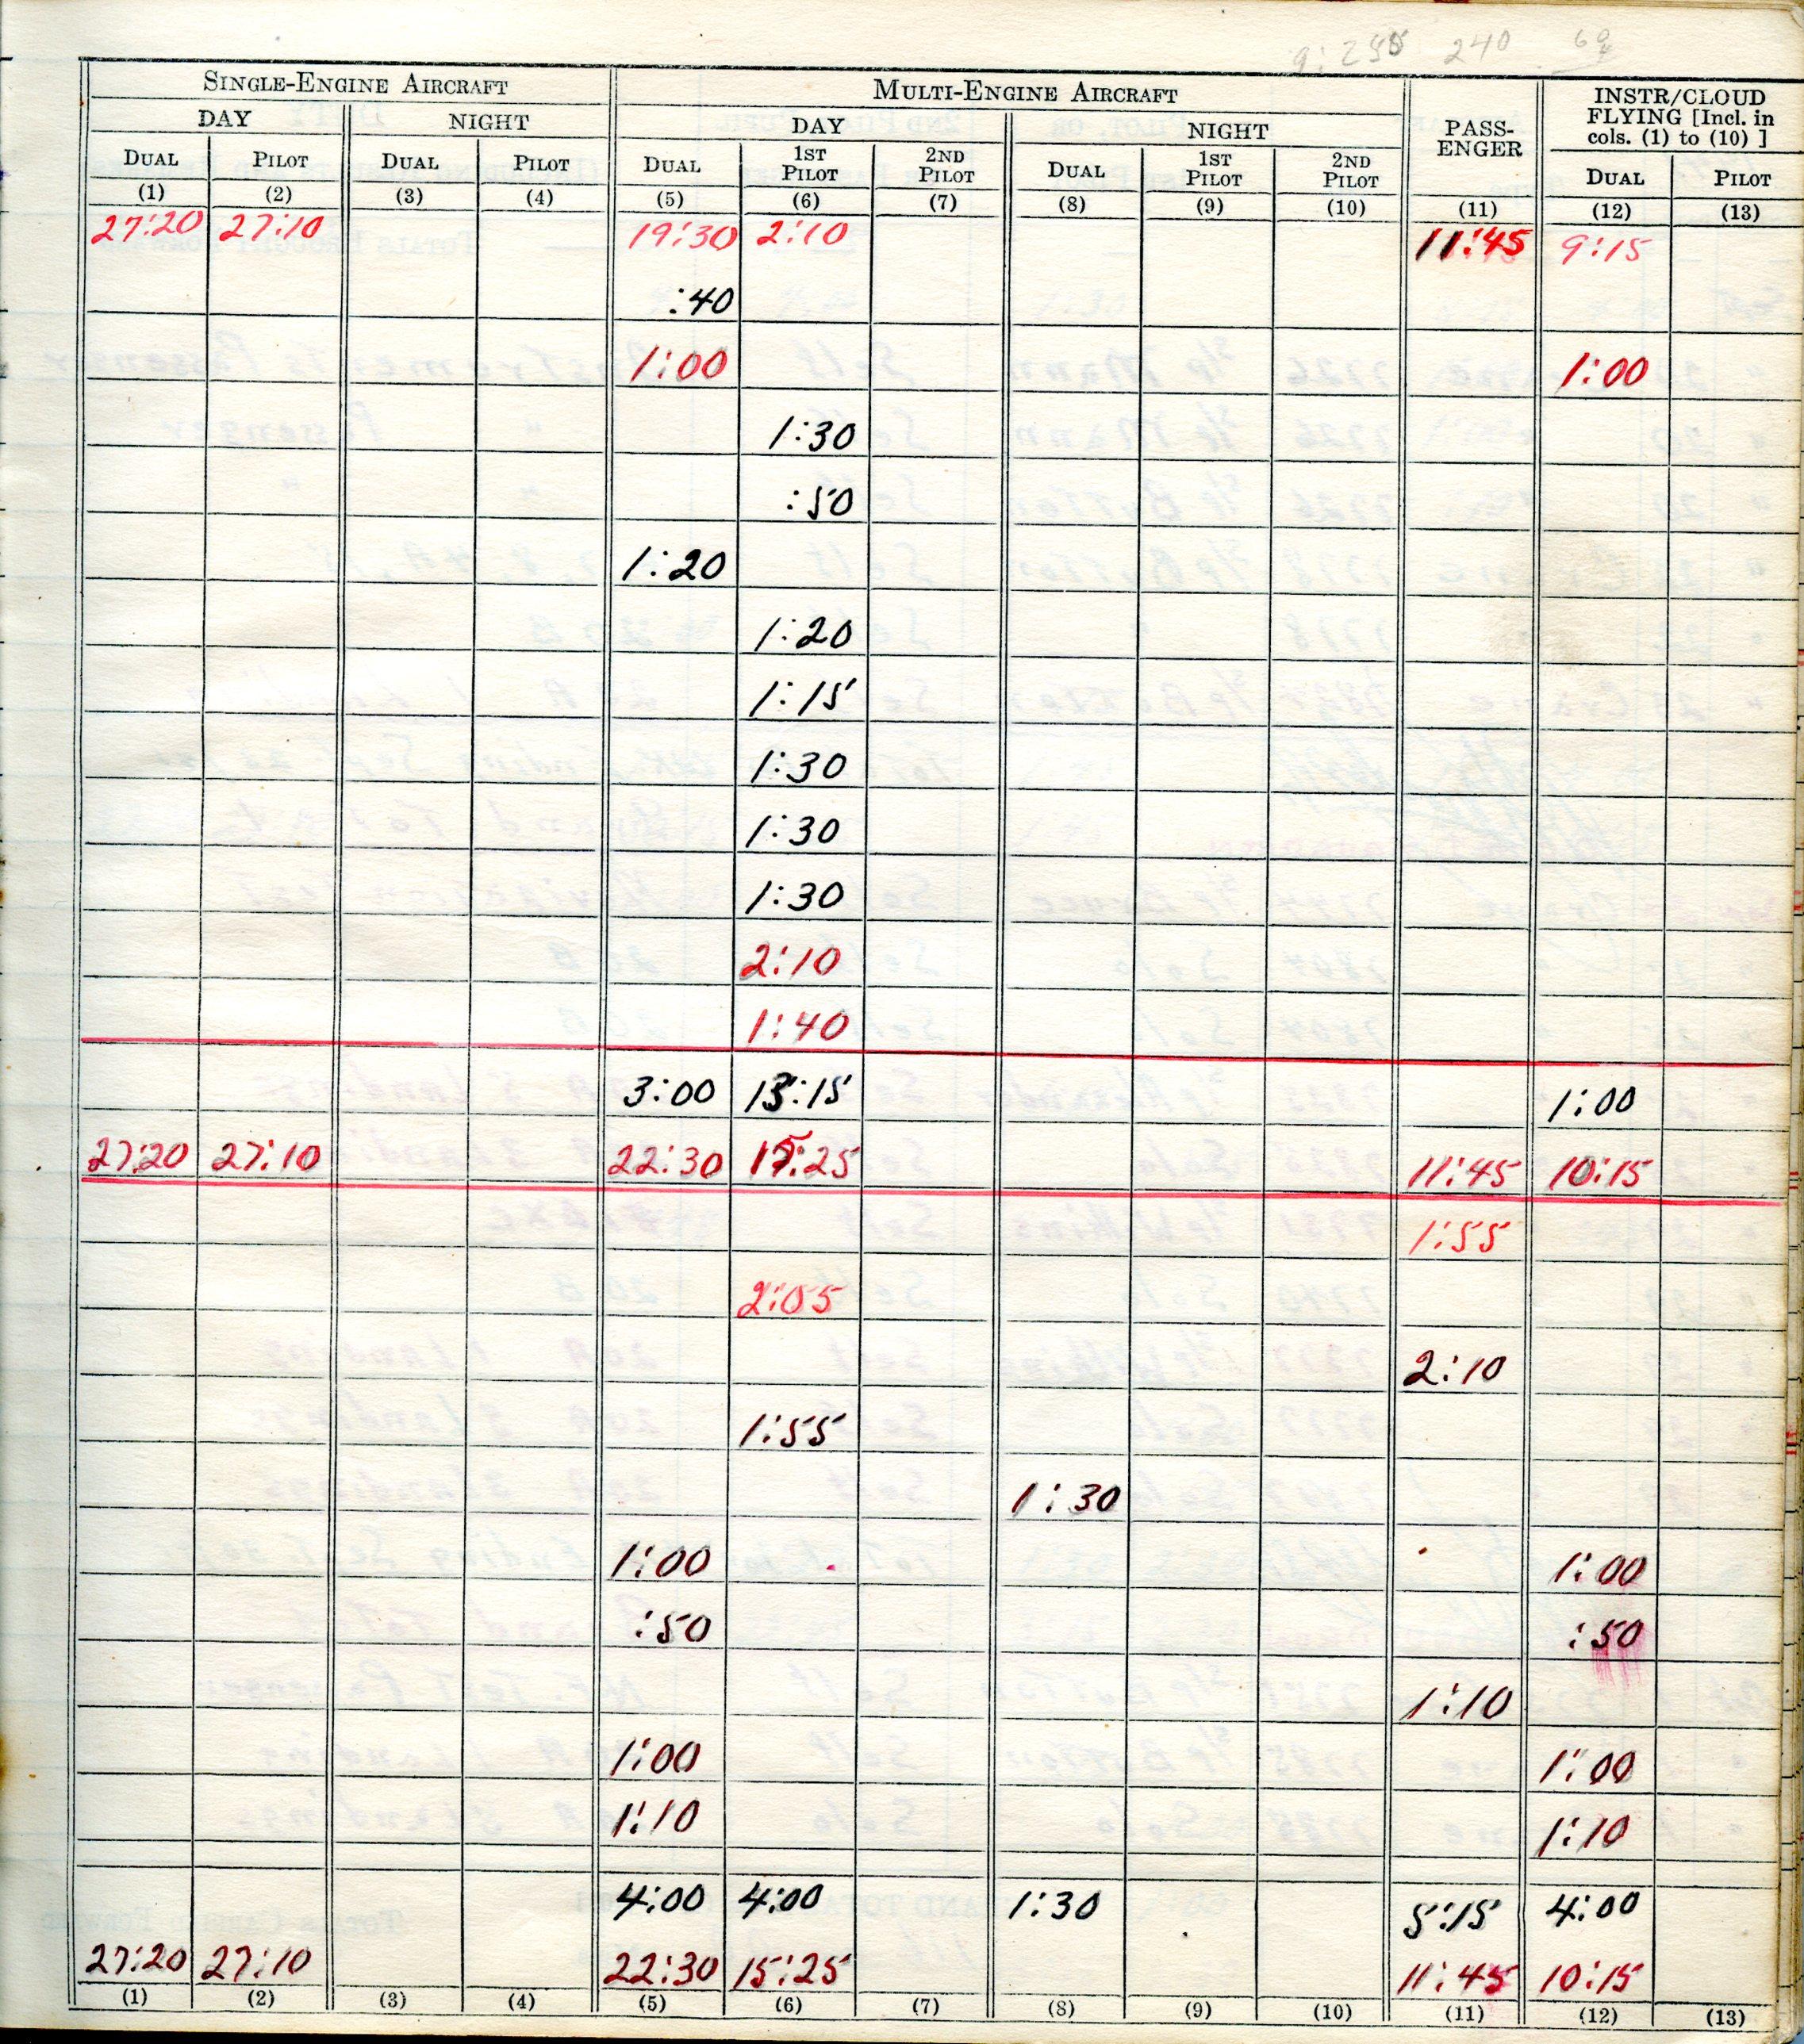 9:255 240
SINGLE-ENGINE AIRCRAFT MULTI-ENGINE AIRCRAFT PASS-ENGER INSTR/CLOUD FLYING [Incl. in cols. (1) to (10) ]
DAY NIGHT DAY NIGHT
DUAL PILOT DUAL PILOT DUAL 1ST PILOT 2ND PILOT DUAL 1ST PILOT 2ND PILOT DUAL PILOT
(1) (2) (3) (4) (5) (6) (7) (8) (9) (10) (11) (12) (13)
27:20 27:10 19:30 2:10 11:45 9:15
:40
1:00 1:00
1:30
:50
1:20
1:20
1:15
1:30
1:30
1:30
2:10
1:40
3:00 13:15 1:00
27:20 27:10 22:30 15:25 11:45 10:15
1:55
2:05
2:10
1:55
1:30
1:00 1:00
:50 :50
1:10
1:00 1:00
1:10 1:10
4:00 4:00 1:30 5:15 4:00
27:20 27:10 22:30 15:25 11:45 10:15
(1) (2) (3) (4) (5) (6) (7) (8) (9) (10) (11) (12) (13)